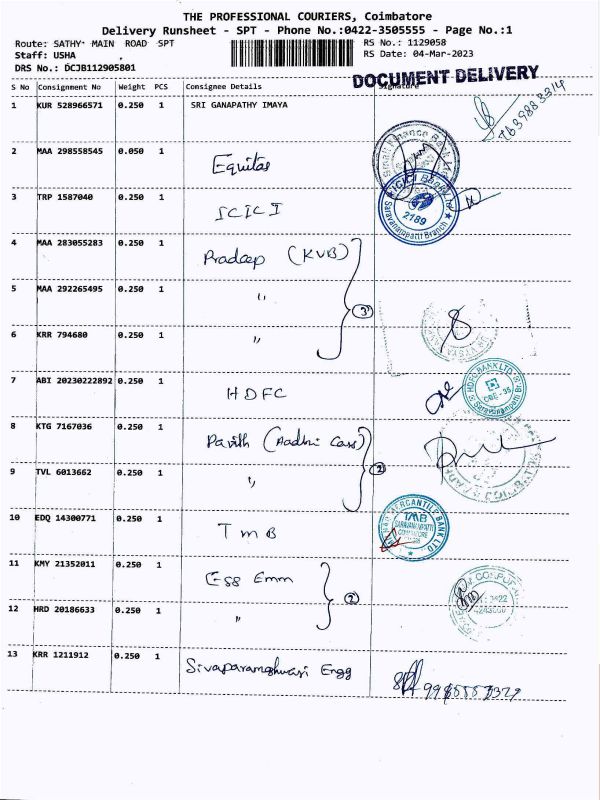 THE PROFESSIONAL COURIERS, Coimbatore
Delivery Runsheet - SPT - Phone No.:0422-3505555 - Page No.:1
Route: SATHY MAIN ROAD SPT
RS No.: 1129058
Staff: USHA
RS Date: 04-Mar-2023
DRS No.: DCJB112905801
DOCUMENT DELIVERY
S No Consignment No Weight PCS Consignee Details Signature
1 KUR 528966571 0.250 1 SRI GANAPATHY IMAYA
2 MAA 298558545 0.050 1 Equitas
Small Finance Bank
3 TRP 1587040 0.250 1 ICICI
ICICI Bank Ltd
2189
Saravanampatti Branch
4 MAA 283055283 0.250 1 Pradeep (KVB)
5 MAA 292265495 0.250 1 "
3
6 KRR 794680 0.250 1 "
7 ABI 20230222892 0.250 1 HDFC
HDFC BANK LTD
CBE-35
Saravanampatti
8 KTG 7167036 0.250 1 Pavith (Aadhi Cass)
2
9 TVL 6013662 0.250 1 "
10 EDQ 14300771 0.250 1 TMB
MERCANTILE BANK LTD
TMB
SARAVANAMPATTI
COIMBATORE
11 KMY 21352011 0.250 1 Egg Emm
2
12 HRD 20186633 0.250 1 "
13 KRR 1211912 0.250 1 Sivaparameshwari Engg